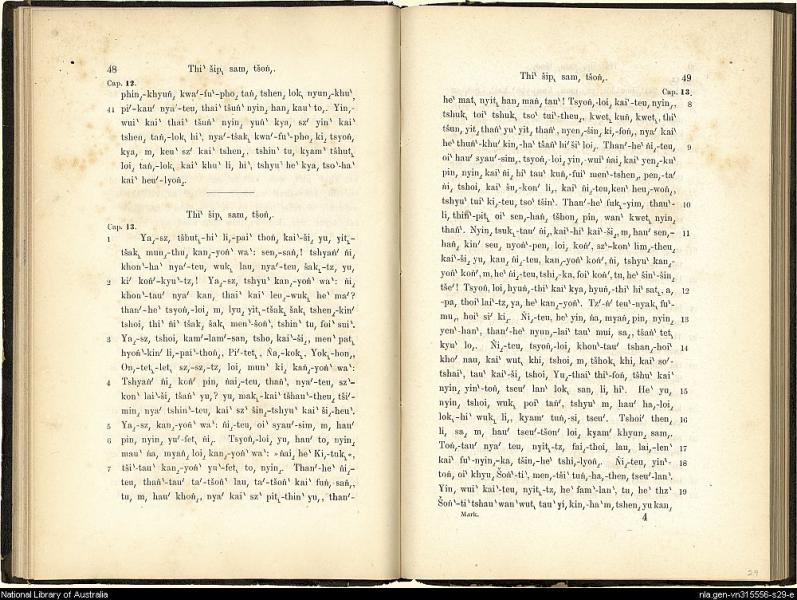 48 Thiʻ šip˛ sam, tšoń,.
Cap. 12.
phin,-khyuń, kwa′-fuʻ-pho, tań, tshen, lok˛ nyun,-khuʻ,
44 pi′-kau′ nya′-teu, thai′ tšuńʻ nyin, han, kau′ to,. Yin,-
wui′ kai′ thai′ tšuńʻ nyin, yuńʻ kya, sz′ yinʻ kai
tshen, tań,-lok˛ hiʻ, nya′-tšak˛ kwa′-fuʻ-pho, ki, tsyoń,
kya, m, keu′ sz′ kai′ tshen,. tshinʻ tu, kyam′ tšhut˛
loi, tań,-lok˛ kaiʻ khuʻ li, hiʻ, tshyuʻ heʻ kya, tso′-ha′
kaiʻ heu′-lyoń,.
Thiʻ šip˛ sam, tšoń,.
Cap. 13.
1 Ya,-sz, tšhut˛-hiʻ li,-pai′ thoń, kai′-ši, yu, yit˛-
tšak˛ mun,-thu, kan,-yoń′ waʻ: sen,-sań,! tshyań′ ńi,
khon′-ha′ nya′-teu, wuk˛ lau, nya′-teu, šak˛-tz, yu,
2 ki′ koń′-kyuʻ-tz,! Ya,-sz, tshyuʻ kan,-yoń′ waʻ: ńi,
khon′-tau′ nya′ kan, thai′ kaiʻ leu,-wuk˛ heʻ ma′?
than′-heʻ tsyoń,-loi, m, lyu, yit˛-tšak˛ šak˛ tshen,-kin′
tshoi, thiʻ ńiʻ tšak˛ šak˛ men′-šońʻ, tshin′ tu, foi′ suiʻ.
3 Ya,-sz, tshoi, kam′-lam′-san, tsho, kai′-ši,, men′ pat˛
hyoń′-kin′ li,-pai′-thoń,, Pi′-tet˛, Ńa,-kok˛, Yok˛-hon,,
On,-tet˛-let˛ sz,-sz,-tz, loi, munʻ ki, kań,-yoń′ waʻ:
4 Tshyań′ ńi, koń′ pin, ńai,-teu, thańʻ, nya′-teu, sz′-
kon′ lai′-ši, tšań′ yu,? yu, mak˛-kai′ tšhau′-theu, tši′-
min, nya′ tshin′-teu, kai′ sz′ šin,-tshyuʻ kai′ ši,-heu′.
5 Ya,-sz, kan,-yoń′ waʻ: ńi,-teu, oi′ syau′-sim, m, hau′
6 pin, nyin, yu′-fet˛ ńi,. Tsyoń,-loi, yu, hau′ to, nyin,
mau, ńa, myań, loi, kan,-yoń′ waʻ: »ńai, heʻ Ki,-tuk˛«,
7 tšiʻ-tau′ kan,-yoń′ yu′-fet˛ to, nyin,. Than′-heʻ ńi,-
teu, thańʻ-tau′ taʻ-tšoń′ lau, ta′-tšoń′ kaiʻ fuń,-sań,,
tu, m, hau′ khoń,, nya′ kai′ sz′ pit˛-thin′ yu,, than′-
Thiʻ šip˛ sam, tšoń,. 49
Cap. 13.
heʻ mat˛ nyit˛ han, mań, tauʻ! Tsyoń,-loi, kai′-teu, nyin,, 8
tshuk˛ toi′ tshuk˛ tso′ tui′-theu,, kwet˛ kuń, kwet˛, thi′
tšun, yit˛ thańʻ yu′ yit˛ thańʻ, nyen,-šin, ki,-foń,, nya′ kai′
heʻ thuńʻ-khu′ kin,-ha′ tšań′ hi′ ši′ loi,. Than′-heʻ ńi,-teu, 9
oi′ hau′ syau′-sim,, tsyoń,-loi, yin,-wui′ ńai, kai′ yen,-ku′
pin, nyin, kai′ ńi, hiʻ tau′ kuń,-fui′ men′-tshen,, pen,-ta′
ńi, tshoi, kai′ šu,-kon′ li,, kai′ ńi,-teu, ken′ heu,-woń,,
tshyuʻ tui′ ki,-teu, tso′ tšin′. Than′-heʻ fuk˛-yim, thau′- 10
li, thiń′-pit˛ oi′ sen,-hań, tšhon, pin, wan′ kwet˛ nyin,
thańʻ. Nyin, tsuk˛-tau′ ńi,, kai′-hiʻ kai′-ši,, m, hau′ sen,- 11
hań, kin′ seu, nyoń′-pen, loi, koń′, sz′-kon′ lim,-theu,
kai′-ši, yu, kau, ńi,-teu, kan,-yoń′ koń′, ńi, tshyuʻ kan,-
yoń′ koń′, m, heʻ ńi,-teu, tshi,-ka, foi′ koń′, tu, heʻ šin′-šin,
tše′! Tsyoń, loi, hyuń,-thiʻ kai′ kya, hyuń,-thiʻ hiʻ sat˛, a, 12
-pa, thoi′ lai′-tz, ya, heʻ kan,-yoń′. Tz′-ń′ teuʻ-nyak˛ fuʻ-
mu,, hoi′ si′ ki,. Ńi,-teu, heʻ yin, ńa, myań, pin, nyin, 13
yen′-han′, than′-heʻ nyun,-lai′ tau′ mui, sa,, tšań′ tet˛
kyuʻ lo,. Ńi,-teu, tsyoń,-loi, khon′-tau′ tshan,-hoi′ 14
kho′ nau, kai′ wut˛ khi, tshoi, m, tšhok˛ khi, kai′ so′-
tshai′, tau′ kai′-ši, tshoi, Yu,-thai′ thi′-foń, tšhu′ kai′
nyin, yin′-toń, tseuʻ lan′ lok˛ san, li, hiʻ. Heʻ yu, 15
nyin, tshoi, wuk˛ poi′ tań′, tshyuʻ m, hau′ ha,-loi,
lok˛-hiʻ wuk˛ li,, kyam′ tuń,-si, tseuʻ. Tshoiʻ then, 16
li, sa, m, hau′ tseu′-tšon′ loi, kyam′ khyun, sam,.
Toń,-tau′ nya′ teu, nyit˛-tz, fai,-thoi, lau, lai,-len′ 17
kai′ fuʻ-nyin,-ka, tšin,-heʻ tshi,-lyoń,. Ńi,-teu, yin′- 18
toń, oi′ khyu, Šoń′-tiʻ, men,-tši′ tuń,-ha,-then, tseu′-lanʻ.
Yin, wui′ kai′-teu, nyit˛-tz, heʻ famʻ-lanʻ, tu, heʻ thz′ 19
Šoń′-ti′ tshau′ wanʻ wut˛ tauʻ yi, kin,-ha′ m, tshen, yu kan,
Mark. 4
29
National Library of Australia nla.gen-vn315556-s29-e